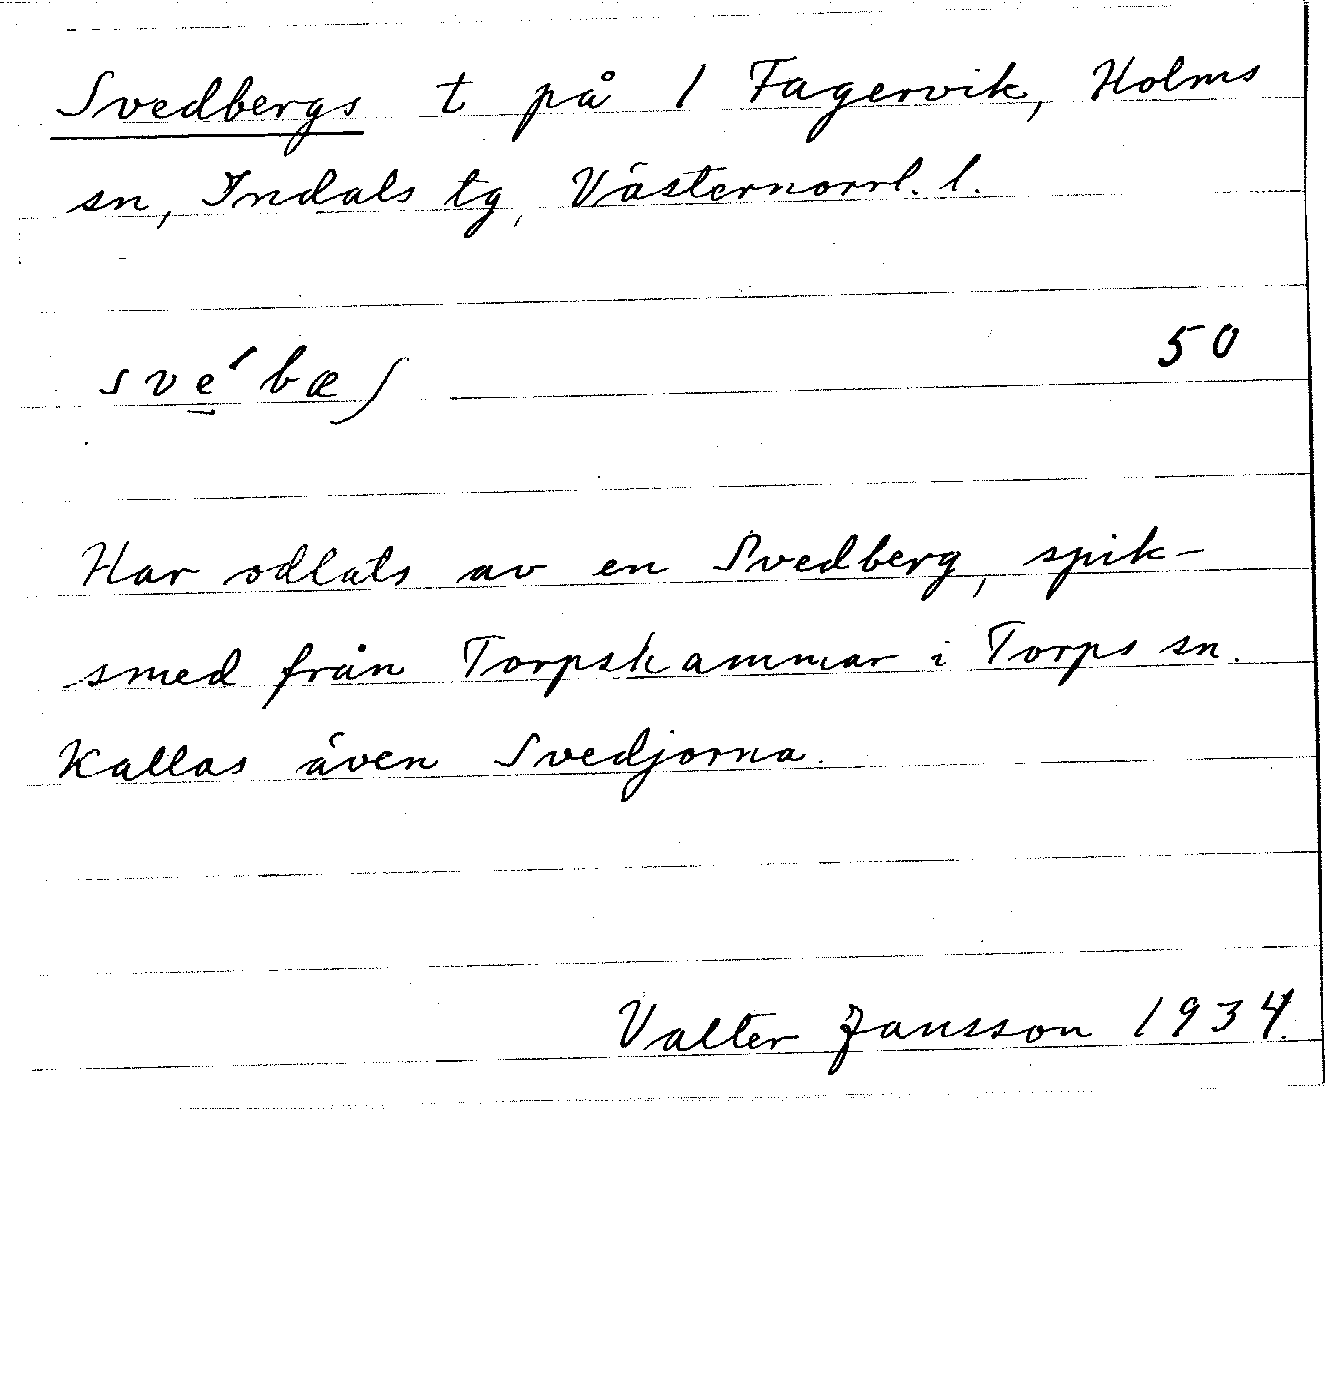 Svedbergs t på 1 Fagervik, Holms
sn, Indals tg, Västernorrl. l.
své̱bæʃ 50
Har odlats av en Svedberg, spik-
smed från Torpshammar i Torps sn.
Kallas även Svedjorna.
Valter Jansson 1934.